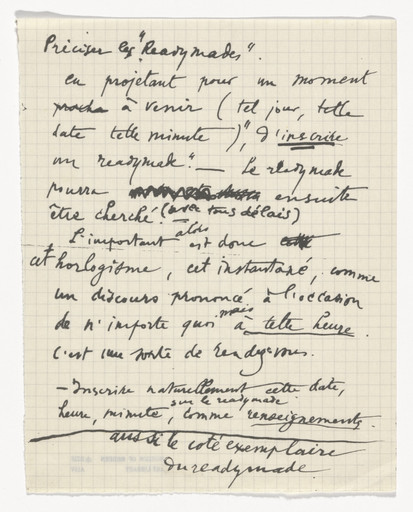 Préciser les "Readymades".
en projetant pour un moment
procha à venir (tel jour, telle
date telle minute)", d'inscrire
un readymade". — Le readymade
pourra ensuite
être cherché. (avec tous délais)
L'important alors est donc
cet horlogisme, cet instantané, comme
un discours prononcé à l'occasion
de n'importe quoi mais à telle heure.
C'est une sorte de rendezvous.
— Inscrire naturellement cette date,
heure, minute, sur le readymade comme renseignements.
aussi le coté exemplaire
du readymade.